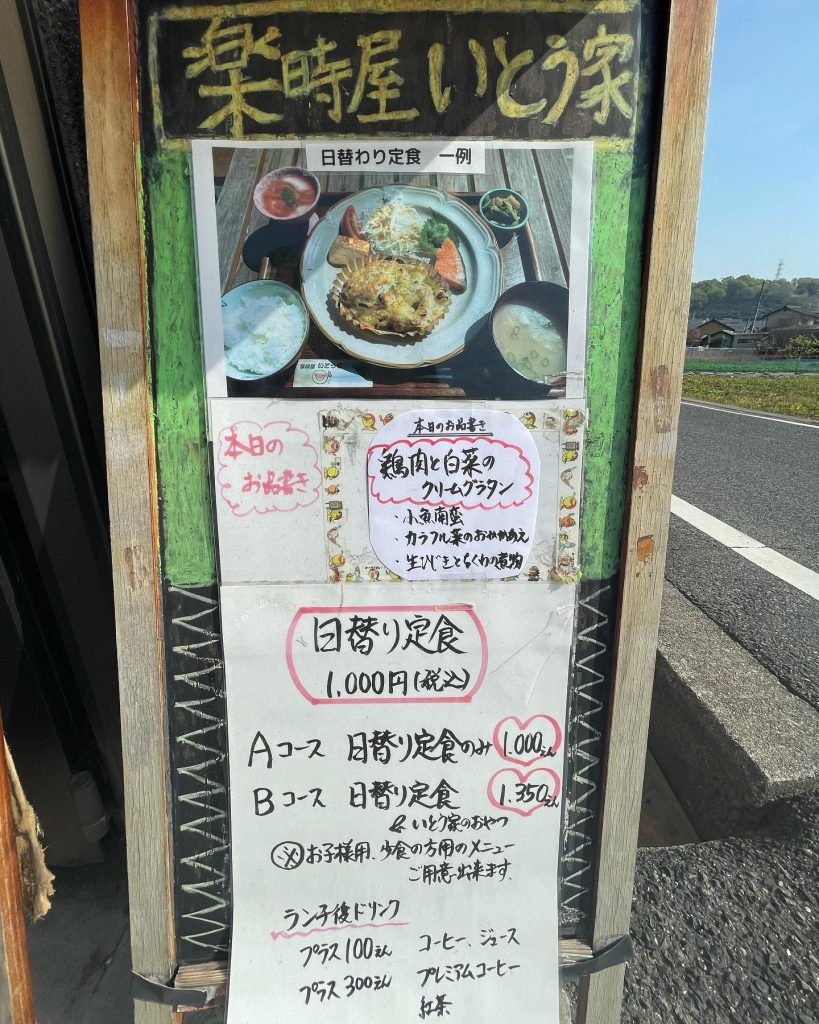 楽時屋 いとう家
日替わり定食 一例
楽時屋 いとう家
本日の
お品書き
本日のお品書き
鶏肉と白菜の
クリームグラタン
・小魚南蛮
・カラフル菜のおかかあえ
・生ひじきとちくわの煮物
日替り定食
1,000円(税込)
Aコース 日替り定食のみ 1.000えん
Bコース 日替り定食 1.350えん
& いとう家のおやつ
※お子様用、少食の方用のメニュー
ご用意出来ます。
ランチ後ドリンク
プラス100えん コーヒー、ジュース
プラス300えん プレミアムコーヒー
紅茶